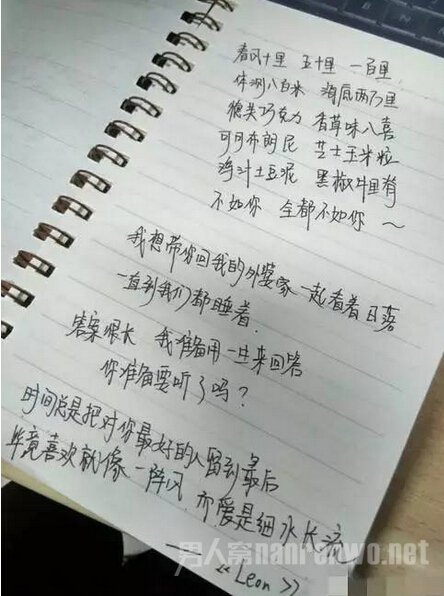 春风十里 五十里 一百里
体测八百米 海底两万里
德芙巧克力 香草味八喜
可可布朗尼 芝士玉米粒
鸡汁土豆泥 黑椒牛里脊
不如你 全都不如你 ～
我想带你回我的外婆家 一起看着日落
一直到我们都睡着.
答案很长 我准备用一生来回答
你准备要听了吗?
时间总是把对你最好的人留到最后
毕竟喜欢就像一阵风, 而爱是细水长流
——《Leon》
男人窝nanrenwo.net